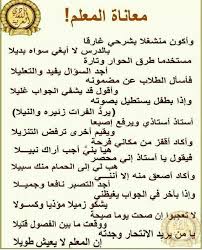 معاناة المعلم!
وأكون منشغلا بشرحي غارقا
بالدرس لا أبغي سواه بديلا
مستخدما طرق الحوار وتارة
أجد السؤال يفيد والتعليلا
فأسأل الطلاب عن مضمونه
وأقول قد يشفي الجواب غليلا
وإذا بطفل يستطيل بصوته
(يردّ الفرات زئيره والنيلا)
أستاذ أستاذي ويرفع إصبعا
ويقيم أخرى ترفض التنزيلا
وأكاد أقفز من مكاني فرحة
هيا بنيّ أجب أراك نبيـــلا
فيقول يا أستاذ إني محصر
هب لي إلى الحمام منك سبيلا
وأكاد أصعق منه إلا أنني
أجد التصبر نافعا وجميـــلا
وإذا بآخر في الجواب يغيظني
يشكو زميلا مؤذيا وكسولا
لا تعجبوا إن صحت يوما صيحة
ووقعت ما بين الفصول قتيلا
يا من يريد الانتحار وجدته
إن المعلم لا يعيش طويلا